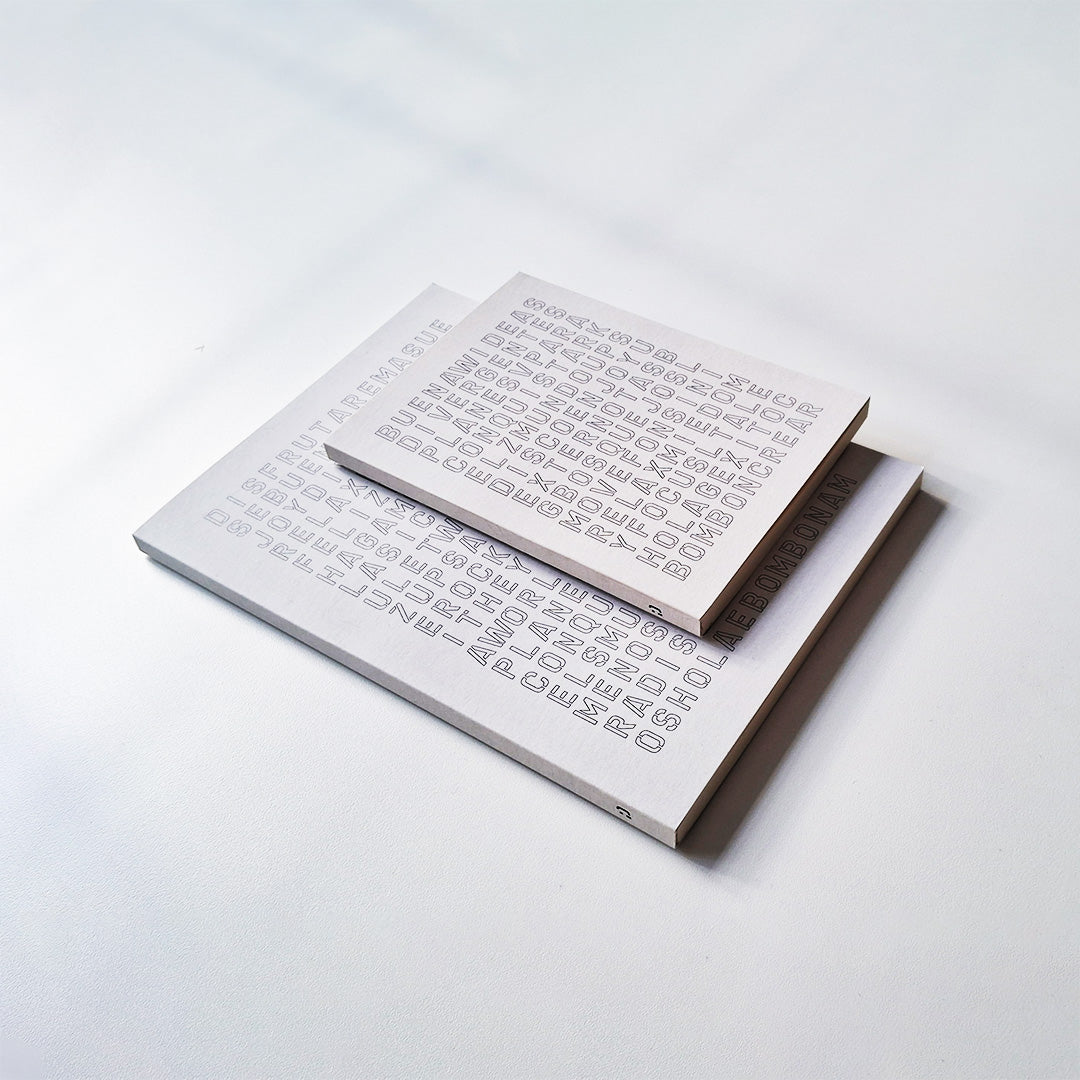 BUENAWIDEAS
DIVERGENTES
PLANESVPARA
CONQUISTARK
ELZMUNDOUPS
DISCOENJOYU
EXTERNOTASB
GBOSQUEJOSL
MOVEFONSINI
RELAXMIEDOM
YFOCUSLTALE
HOLAGEXITOC
BOMBONCREAR
:)
DISFRUTAREMASUE
SEBUE
JOYDI
ULETW
ZUPSA
EROCK
ITHEY
AWORL
PLANE
CONQU
ELSMU
MENOS
RADIS
OSHOLAEBOMBONAM
:)